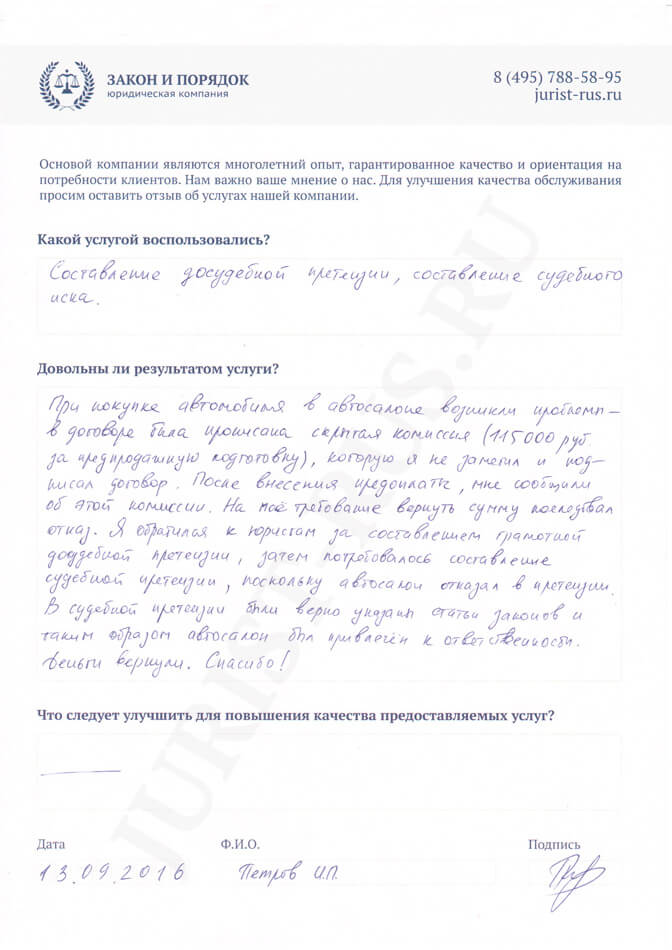 ЗАКОН И ПОРЯДОК
юридическая компания
8 (495) 788-58-95
jurist-rus.ru
Основой компании являются многолетний опыт, гарантированное качество и ориентация на
потребности клиентов. Нам важно ваше мнение о нас. Для улучшения качества обслуживания
просим оставить отзыв об услугах нашей компании.
Какой услугой воспользовались?
Составление досудебной претензии, составление судебного
иска.
Довольны ли результатом услуги?
При покупке автомобиля в автосалоне возникли проблемы –
в договоре была прописана скрытая комиссия (115000 руб.
за предпродажную подготовку), которую я не заметил и под-
писал договор. После внесения предоплаты, мне сообщили
об этой комиссии. На моё требование вернуть сумму последовал
отказ. Я обратился к юристам за составлением грамотной
досудебной претензии, затем потребовалось составление
судебной претензии, поскольку автосалон отказал в претензии.
В судебной претензии были верно указаны статьи законов и
таким образом автосалон был привлечён к ответственности.
Деньги вернули. Спасибо!
Что следует улучшить для повышения качества предоставляемых услуг?
Дата
Ф.И.О.
Подпись
13.09.2016
Петров И.П.
JURIST-RUS.RU